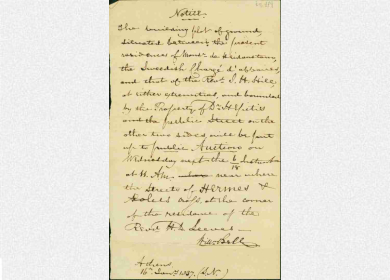 Notice.
The building plot of ground,
situated between the present
residence of Monsr. de
the Swedish Chargé d'affaires,
and that of the Revd. J. H. Hill,
at either extremities, and bounded
by the Property of Dr.
and the public Street on the
other two sides, will be put
up to public Auction on
Wednesday next the 6/18
at 11 A.M. near where
the Streets of Hermes &
at the corner
of the residence of the
Revd. H. Leeves
Athens